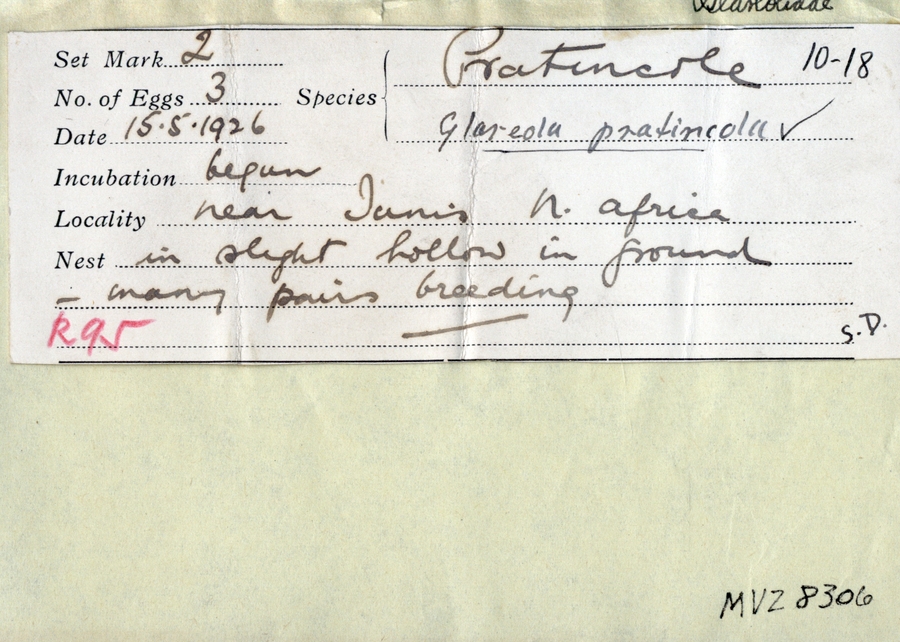 Glareolidae
Set Mark 2
No. of Eggs 3 Species Pratincole 10-18
Date 15.5.1926 Glareola pratincola ✓
Incubation began
Locality near Tunis N. Africa
Nest in slight hollow in ground
- many pairs breeding
R95 S.D.
MVZ 8306